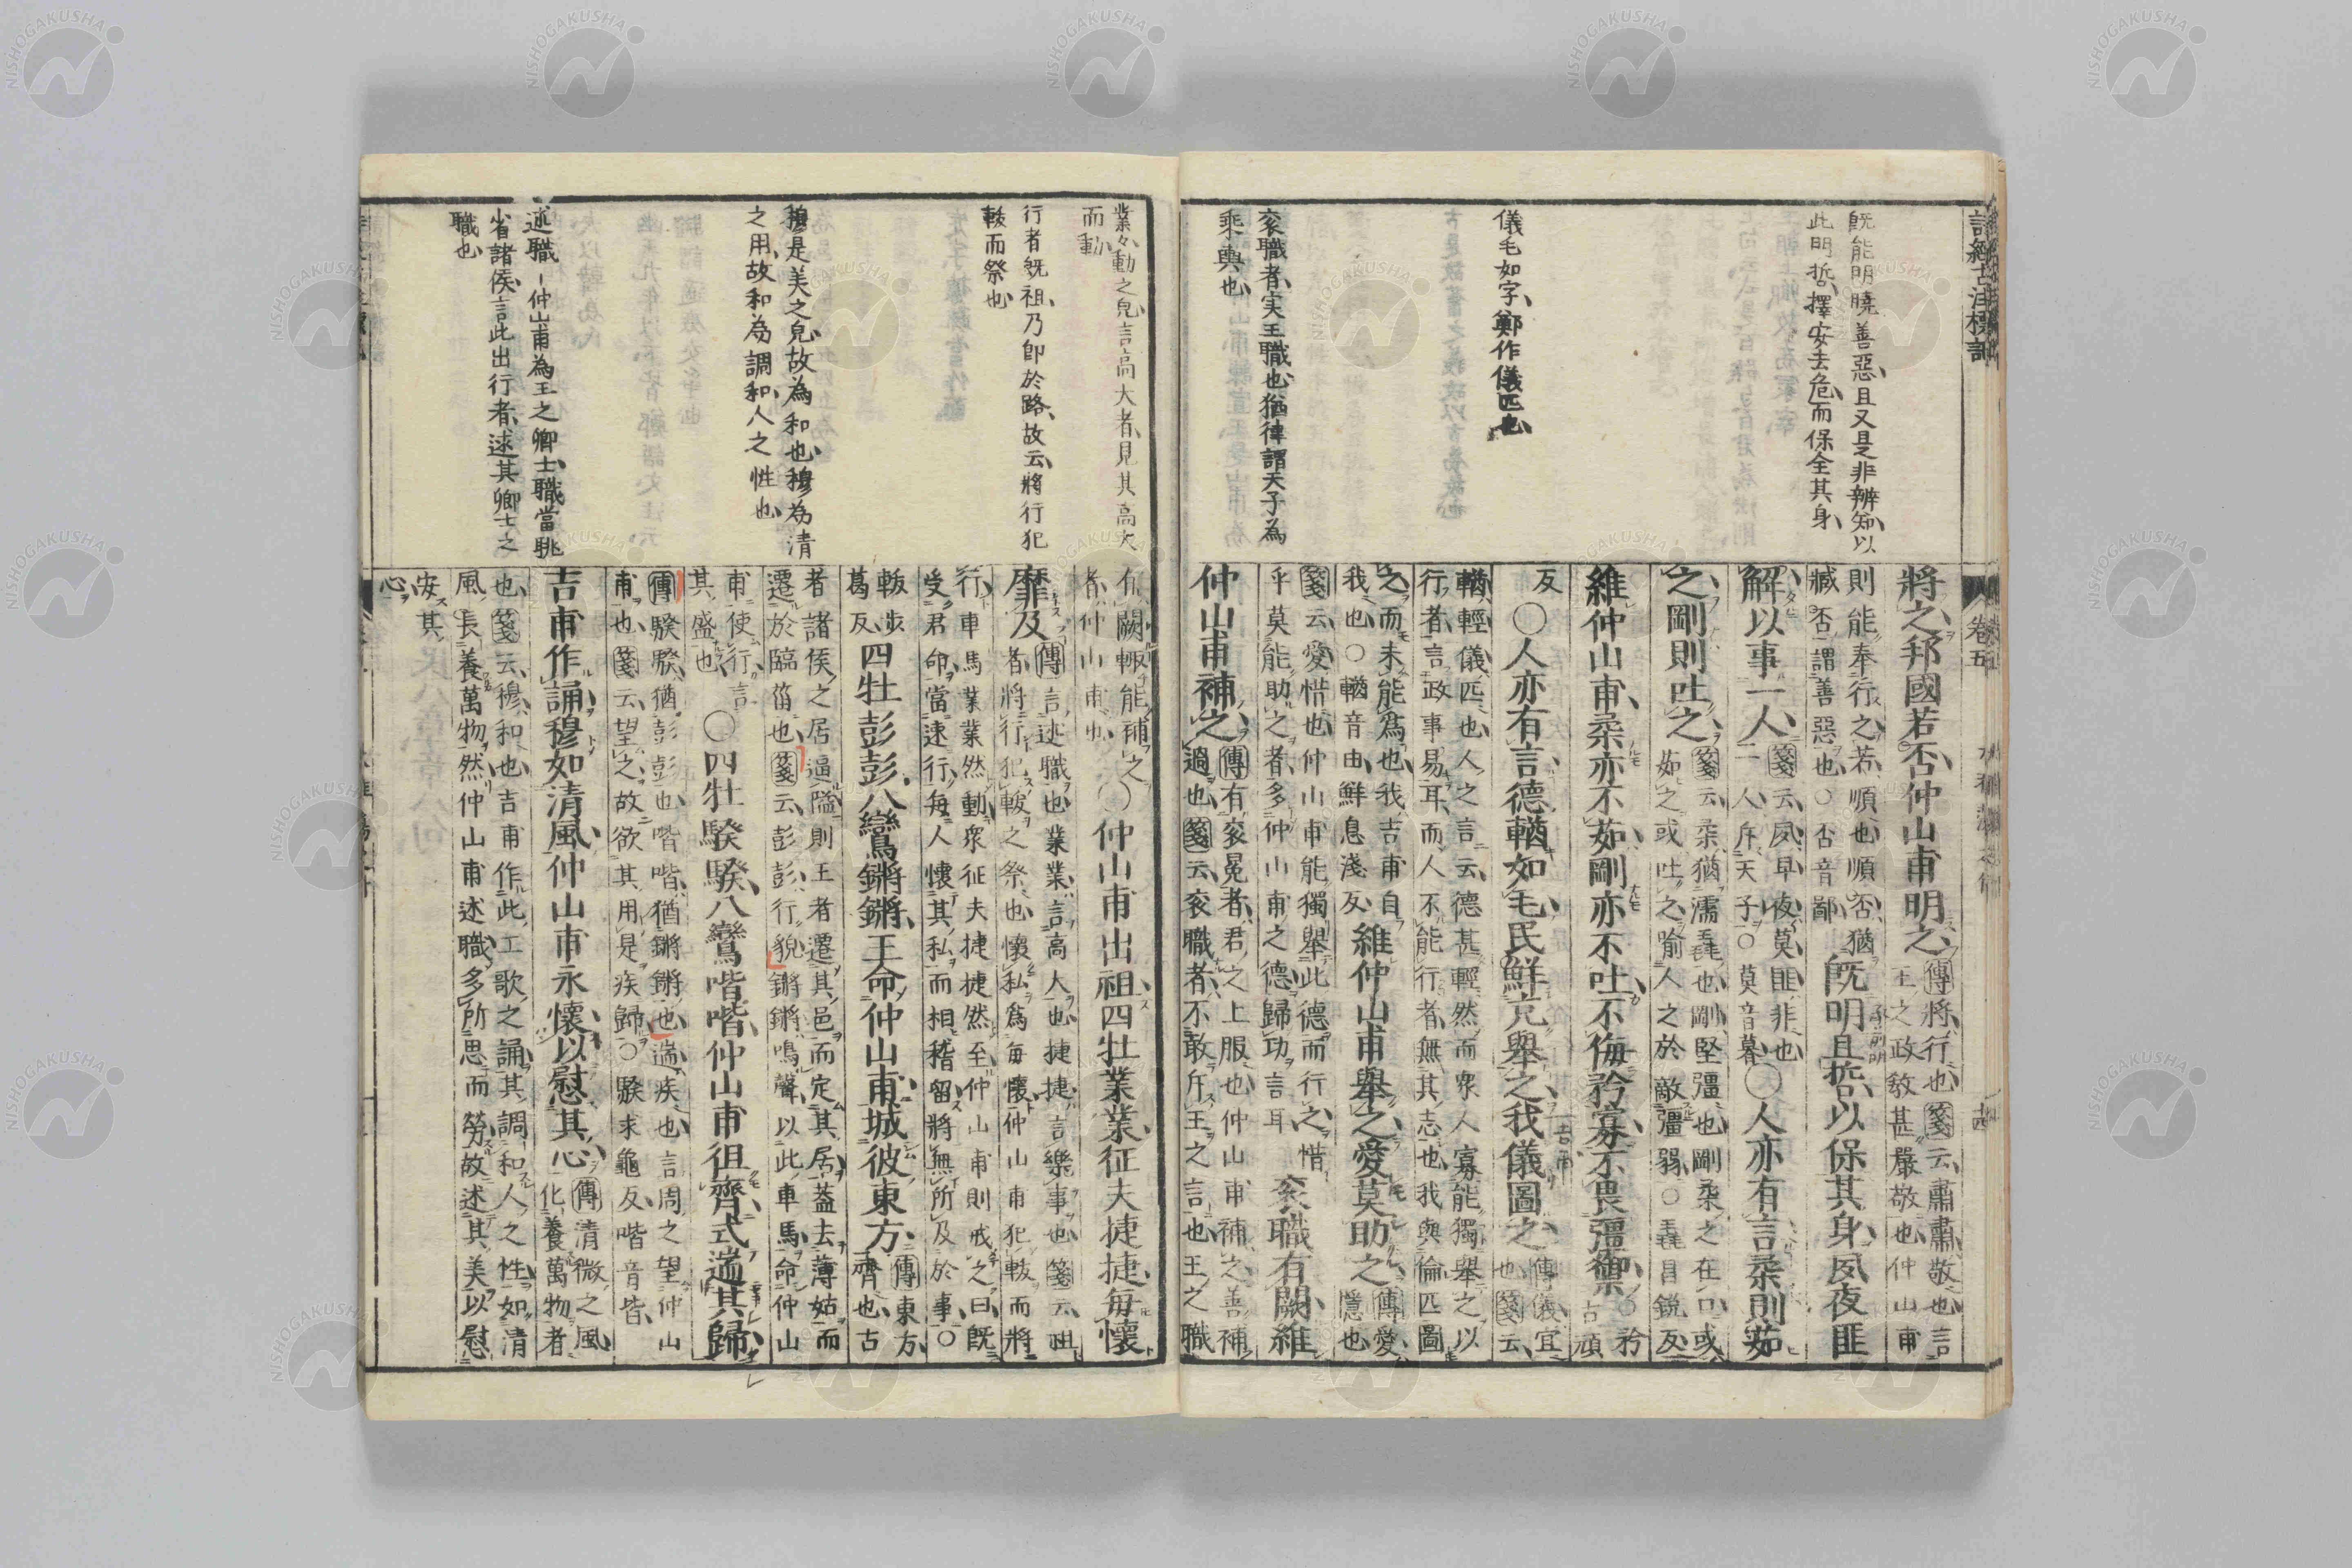 卷五
既能明曉善惡且又是非辨知以
此明哲擇安去危而保全其身
儀毛如字鄭作儀匹也
衮職者实王職也猶律謂天子為
乘輿也
將之邦國若否仲山甫明之
傳將行也箋云肅肅敬也言
王之政敎甚嚴敬也仲山甫
則能奉行之若順也順否猶
臧否謂善惡也○否音鄙
既明且哲以保其身夙夜匪
解以事一人
箋云夙早夜莫匪非也
一人斥天子○莫音暮
○人亦有言柔則茹
之剛則吐之
箋云柔猶濡毳也剛堅彊也剛柔之在口或
茹之或吐之喻人之於敵彊弱○毳昌銳反
維仲山甫柔亦不茹剛亦不吐不侮矜寡不畏彊禦
○矜
古頑
反
○人亦有言德輶如毛民鮮克舉之我儀圖之
傳儀宜
也箋云
輶輕儀匹也人之言云德甚輕然而眾人寡能獨舉之以
行者言政事易耳而人不能行者無其志也我與倫匹圖
之而未能爲也我吉甫自
我也○輶音由鮮息淺反
維仲山甫舉之愛莫助之
傳愛
隱也
箋云愛惜也仲山甫能獨舉此德而行之惜
乎莫能助之者多仲山甫之德歸功言耳
衮職有闕維
仲山甫補之
傳有衮冕者君之上服也仲山甫補之善補
過也箋云衮職者不敢斥王之言也王之職
業々動之皃言高大者見其高大
而動
行者既祖乃卽於路故云將行犯
軷而祭也
穆是美之皃故為和也穆為清
之用故和為調和人之性也
述職-仲山甫為王之卿士職當眺
省諸侯言此出行者述其卿士之
職也
有闕輙能補之
者仲山甫也
○仲山甫出祖四牡業業征夫捷捷每懷
靡及
傳言述職也業業言高大也捷捷言樂事也箋云祖
者將行犯軷之祭也懷私爲每懷仲山甫犯軷而將
行車馬業業然動衆征夫捷捷然至仲山甫則戒之曰旣
受君命當速行每人懷其私而相稽留將無所及於事○
軷步
葛反
四牡彭彭八鸞鏘鏘王命仲山甫城彼東方
傳東方
齊也古
者諸侯之居逼隘則王者遷其邑而定其居葢去薄姑而
遷於臨菑也箋云彭彭行貌鏘鏘鳴聲以此車馬命仲山
甫使行言
其盛也
○四牡騤騤八鸞喈喈仲山甫徂齊式遄其歸
傳騤騤猶彭彭也喈喈猶鏘鏘也遄疾也言周之望仲山
甫也箋云望之故欲其用是疾歸○騤求龜反喈音皆
吉甫作誦穆如清風仲山甫永懷以慰其心
傳清微之風
化養萬物者
也箋云穆和也吉甫作此工歌之誦其調和人之性如清
風長養萬物然仲山甫述職多所思而勞故述其美以慰
安其
心